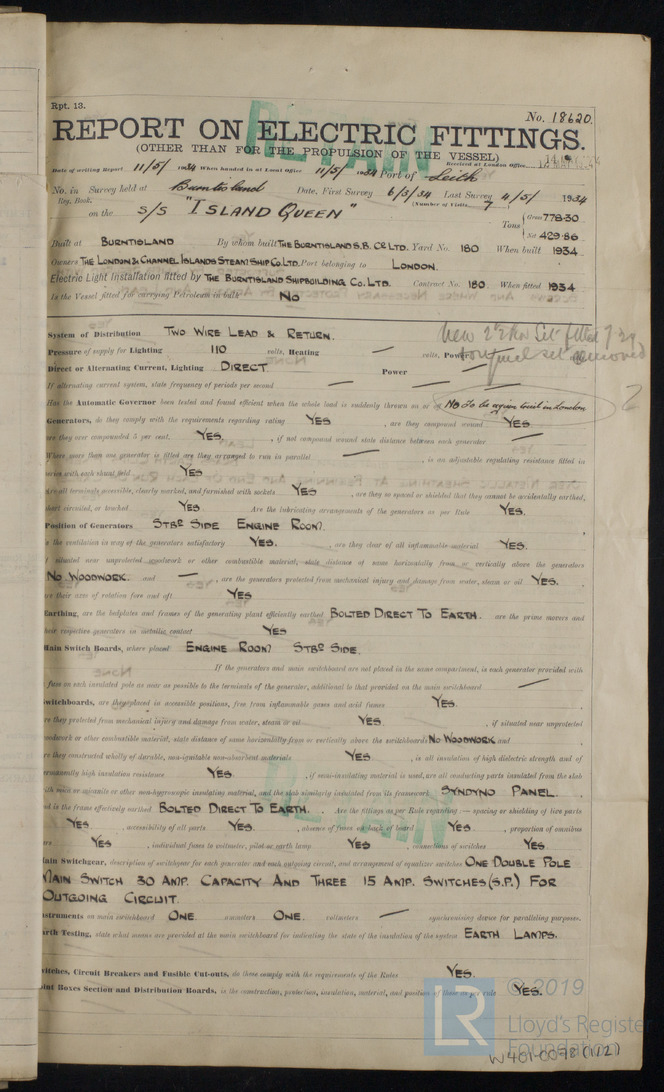 Rpt. 13.
No. 18620.
REPORT ON ELECTRIC FITTINGS.
(OTHER THAN FOR THE PROPULSION OF THE VESSEL)
Date of writing Report 11/5/1934 When handed in at Local Office 11/5/1934 Port of Leith Received at London Office
No. in Survey held at Burntisland Date, First Survey 6/3/34 Last Survey 4/5/1934
Reg. Book. (Number of Visits 7
on the S/S "ISLAND QUEEN" Tons Gross 778.30 Net 429.86
Built at BURNTISLAND By whom built THE BURNTISLAND S.B. Co LTD. Yard No. 180 When built 1934
Owners THE LONDON & CHANNEL ISLANDS STEAMSHIP CO. LTD. Port belonging to LONDON.
Electric Light Installation fitted by THE BURNTISLAND SHIPBUILDING CO. LTD. Contract No. 180 When fitted 1934
Is the Vessel fitted for carrying Petroleum in bulk NO
System of Distribution TWO WIRE LEAD & RETURN.
Pressure of supply for Lighting 110 volts, Heating — volts, Power
removed
Direct or Alternating Current, Lighting DIRECT. Power —
If alternating current system, state frequency of periods per second —
Has the Automatic Governor been tested and found efficient when the whole load is suddenly thrown on or off No To be again tried in London
Generators, do they comply with the requirements regarding rating YES , are they compound wound YES.
are they over compounded 5 per cent. YES. , if not compound wound state distance between each generator —
Where more than one generator is fitted are they arranged to run in parallel — , is an adjustable regulating resistance fitted in
series with each shunt field YES
Are all terminals accessible, clearly marked, and furnished with sockets YES , are they so spaced or shielded that they cannot be accidentally earthed,
short circuited, or touched YES Are the lubricating arrangements of the generators as per Rule YES.
Position of Generators STBD SIDE ENGINE ROOM.
is the ventilation in way of the generators satisfactory YES. , are they clear of all inflammable material YES.
if situated near unprotected woodwork or other combustible material, state distance of same horizontally from or vertically above the generators
NO WOODWORK. and — , are the generators protected from mechanical injury and damage from water, steam or oil YES.
are their axes of rotation fore and aft YES
Earthing, are the bedplates and frames of the generating plant efficiently earthed BOLTED DIRECT TO EARTH. are the prime movers and
their respective generators in metallic contact YES
Main Switch Boards, where placed ENGINE ROOM STBD SIDE.
If the generators and main switchboard are not placed in the same compartment, is each generator provided with
a fuse on each insulated pole as near as possible to the terminals of the generator, additional to that provided on the main switchboard —
Switchboards, are they placed in accessible positions, free from inflammable gases and acid fumes YES.
are they protected from mechanical injury and damage from water, steam or oil YES. , if situated near unprotected
woodwork or other combustible material, state distance of same horizontally from or vertically above the switchboards NO WOODWORK and
are they constructed wholly of durable, non-ignitable non-absorbent materials YES , is all insulation of high dielectric strength and of
permanently high insulation resistance YES , if semi-insulating material is used, are all conducting parts insulated from the slab
with mica or micanite or other non-hygroscopic insulating material, and the slab similarly insulated from its framework SYNDYNO PANEL
and is the frame effectively earthed BOLTED DIRECT TO EARTH. Are the fittings as per Rule regarding:— spacing or shielding of live parts
YES , accessibility of all parts YES. , absence of fuses on back of board YES , proportion of omnibus
bars YES , individual fuses to voltmeter, pilot or earth lamp YES , connections of switches YES
Main Switchgear, description of switchgear for each generator and each outgoing circuit, and arrangement of equalizer switches ONE DOUBLE POLE
MAIN SWITCH 30 AMP. CAPACITY AND THREE 15 AMP. SWITCHES (S.P.) FOR
OUTGOING CIRCUIT.
Instruments on main switchboard ONE ammeters ONE. voltmeters — synchronising device for paralleling purposes.
Earth Testing, state what means are provided at the main switchboard for indicating the state of the insulation of the system EARTH LAMPS.
Switches, Circuit Breakers and Fusible Cut-outs, do these comply with the requirements of the Rules YES.
Joint Boxes Section and Distribution Boards, is the construction, protection, insulation, material, and position of these as per rule YES.
RETAIN
RETAIN
© 2019
LR
Lloyd's Register
Foundation
W401-0098 (1/2)